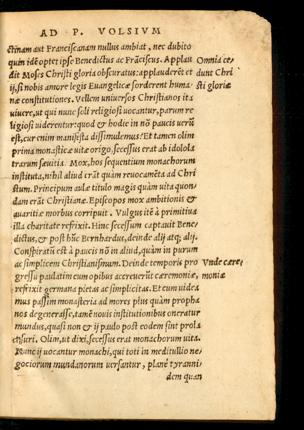 AD P. VOLSIVM
ctinam aut Franciscanam nullus ambiat, nec dubito
quin idē optet ipse Benedictus ac Frāciscus. Applau
Omnia ce
dit Moses Christi gloria obscuratus: applauderēt et
dunt Chri
ij, si nobis amore legis Euangelicæ sorderent huma
sti gloriæ
næ constitutiones. Vellem uniuersos Christianos ita
uiuere, ut qui nunc soli religiosi uocantur, parum re
ligiosi uiderentur: quod & hodie in nō paucis uerū
est, cur enim manifesta dissimulemus? Et tamen olim
prima monasticæ uitæ origo, secessus erat ab idolola
trarum sæuitia. Mox, hos sequentium monachorum
instituta, nihil aliud erāt quàm reuocamēta ad Chri
stum. Principum aulæ titulo magis quàm uita quon
dam erāt Christianæ. Episcopos mox ambitionis &
auaritiæ morbus corripuit. Vulgus itē à primitiua
illa charitate refrixit. Hinc secessum captauit Bene
dictus, & post hūc Bernhardus, deinde alij atq; alij.
Conspiratū est à paucis nō in aliud, quàm in purum
ac simplicem Christianismum. Deinde temporis pro
Vnde cære
gressu paulatim cum opibus accreuerūt cæremoniæ,
moniæ
refrixit germana pietas ac simplicitas. Et cum uidea
mus passim monasteria ad mores plus quàm propha
nos degenerasse, tamē nouis institutionibus oneratur
mundus, quasi non & ij paulo post eodem sint prola
Olim, ut dixi, secessus erat monachorum uita.
Nunc ij uocantur monachi, qui toti in meditullio ne
gociorum mundanorum uersantur, planè tyranni
dem quan